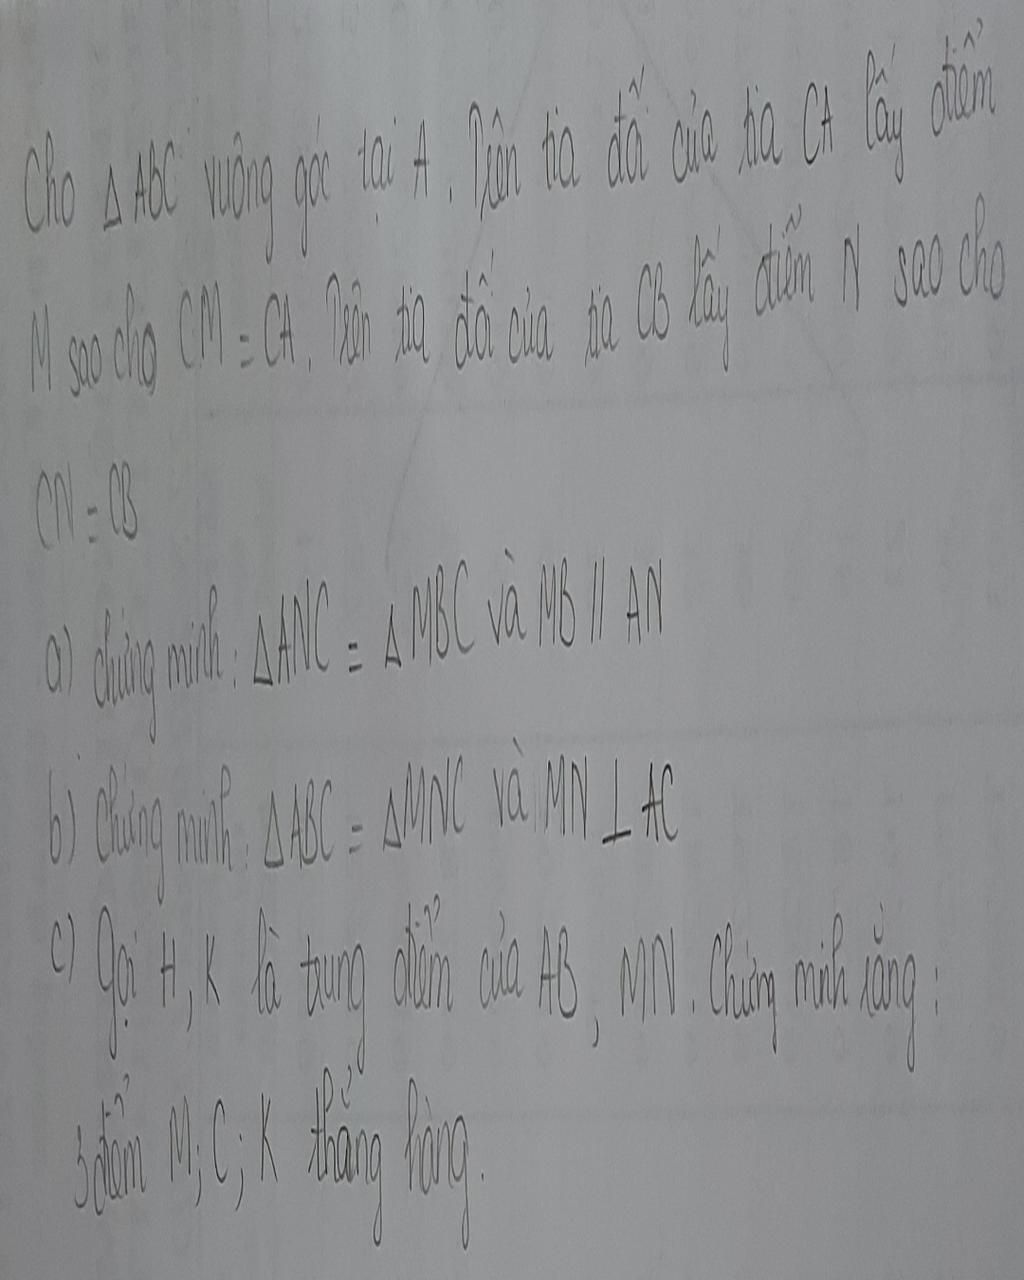 Cho △ABC vuông góc tại A. Trên tia đối của tia CA lấy điểm
M sao cho CM = CA. Trên tia đối của tia CB lấy điểm N sao cho
CN = CB
a) Chứng minh: △ANC = △MBC và MB // AN
b) Chứng minh: △ABC = △MNC và MN ⊥ AC
c) Gọi H, K là trung điểm của AB, MN. Chứng minh rằng:
3 điểm M; C; K thẳng hàng.